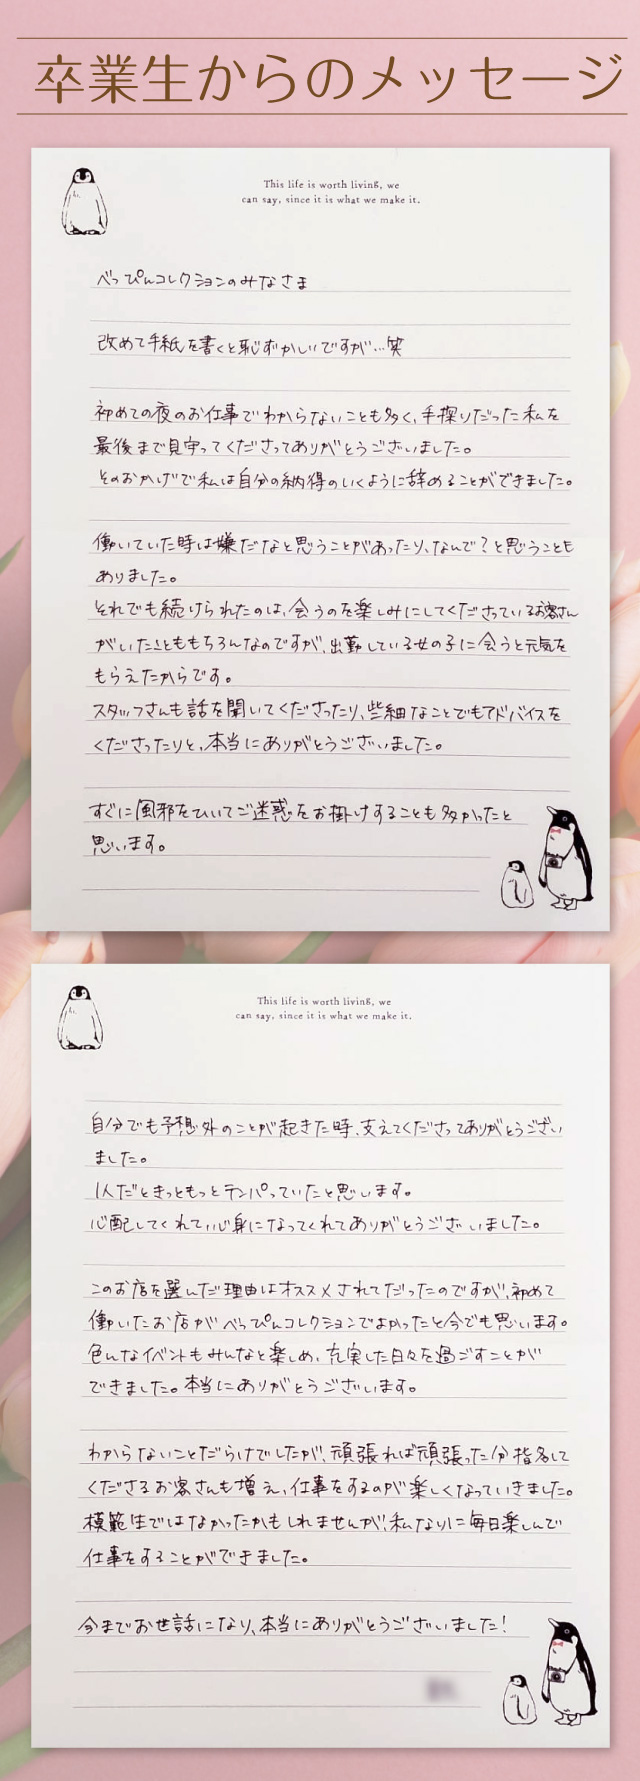 卒業生からのメッセージ
This life is worth living, we
can say, since it is what we make it.
べっぴんコレクションのみなさま
改めて手紙を書くと恥ずかしいですが…笑
初めての夜のお仕事でわからないことも多く、手探りだった私を
最後まで見守ってくださってありがとうございました。
そのおかげで私は自分の納得のいくように辞めることができました。
働いていた時は嫌だなと思うことがあったり、なんで?と思うことも
ありました。
それでも続けられたのは、会うのを楽しみにしてくださっているお客さん
がいたこともちろんなのですが、出勤している女の子に会うと元気を
もらえたからです。
スタッフさんも話を聞いてくださったり、些細なことでもアドバイスを
くださったりと、本当にありがとうございました。
すぐに風邪をひいてご迷惑をお掛けすることも多かったと
思います。
This life is worth living, we
can say, since it is what we make it.
自分でも予想外のことが起きた時、支えてくださってありがとうござい
ました。
1人だときっともっとテンパっていたと思います。
心配してくれて、心身になってくれてありがとうございました。
このお店を選んだ理由はオススメされてだったのですが、初めて
働いたお店がべっぴんコレクションでよかったと今でも思います。
色んなイベントもみんなと楽しめ、充実した日々を過ごすことが
できました。本当にありがとうございます。
わからないことだらけでしたが、頑張れば頑張った分指名して
くださるお客さんも増え、仕事をするのが楽しくなっていきました。
模範生ではなかったかもしれませんが、私なりに毎日楽しんで
仕事をすることができました。
今までお世話になり、本当にありがとうございました!